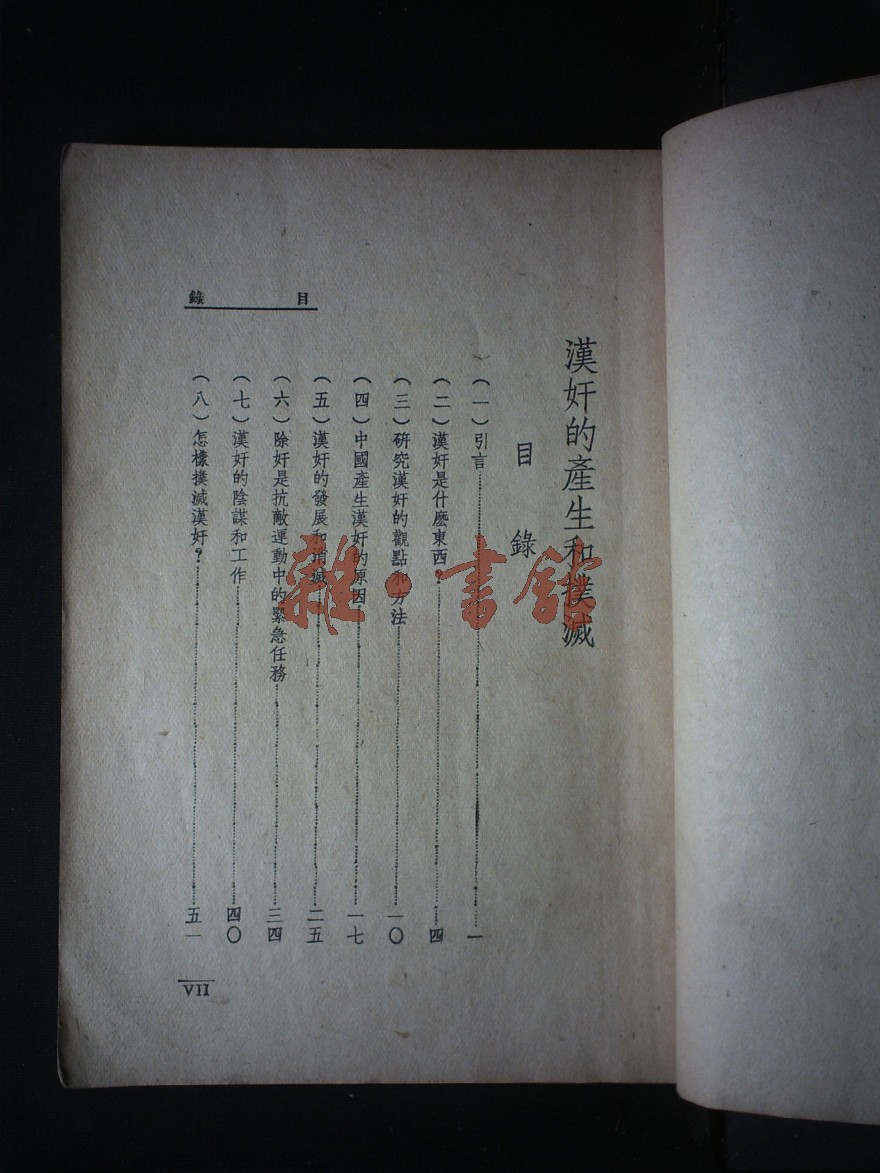 漢奸的產生和撲滅
目錄
（一）引言……一
（二）漢奸是什麼東西？……四
（三）研究漢奸的觀點和方法……一〇
（四）中國產生漢奸的原因……一七
（五）漢奸的發展和消滅……二五
（六）除奸是抗敵運動中的緊急任務……三四
（七）漢奸的陰謀和工作……四〇
（八）怎樣撲滅漢奸？……五一
目錄
VII
雜·書館